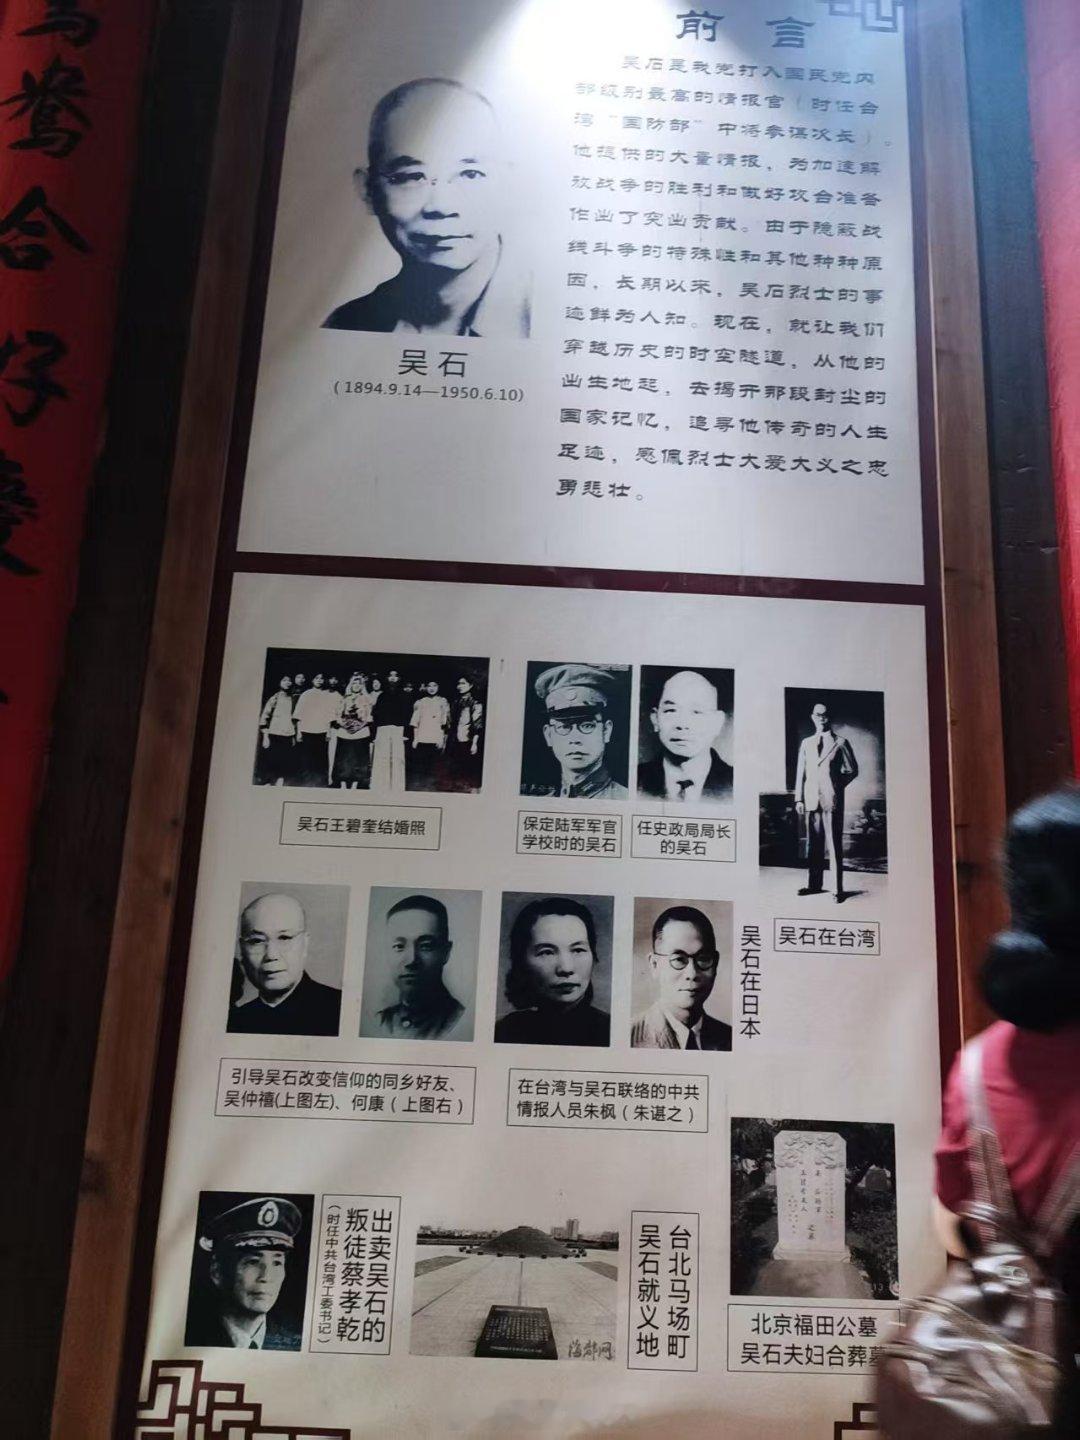 鸯
合
好
前言
吴石是我党打入国民党内
部级别最高的情报官（时任台
湾“国防部”中将参谋次长）。
他提供的大量情报，为加速解
放战争的胜利和做好攻台准备
作出了突出贡献。由于隐蔽战
线斗争的特殊性和其他种种原
因，长期以来，吴石烈士的事
迹鲜为人知。现在，就让我们
穿越历史的时空隧道，从他的
出生地起，去揭开那段封尘的
国家记忆，追寻他传奇的人生
足迹，感佩烈士大爱大义之忠
勇悲壮。
吴石
（1894.9.14—1950.6.10）
吴石王碧奎结婚照
保定陆军军官
学校时的吴石
任史政局局长
的吴石
吴石在台湾
引导吴石改变信仰的同乡好友、
吴仲禧(上图左)、何康（上图右）
在台湾与吴石联络的中共
情报人员朱枫（朱谌之）
吴石在日本
出卖吴石的
叛徒蔡孝乾
（时任中共台湾工委书记）
海都网
台北马场町
吴石就义地
北京福田公墓
吴石夫妇合葬墓